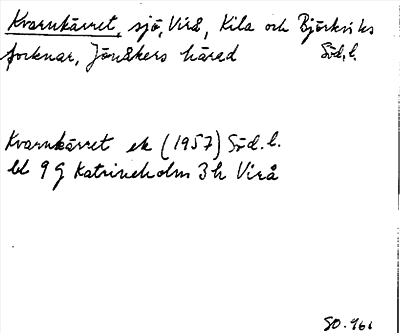 Kvarnkärret, sjö, Virå, Kila och Björkviks
socknar, Jönåkers härad Söd. l.
Kvarnkärret ek (1957) Söd. l.
bl 9 G Katrineholm 3 h Virå
SO. 966